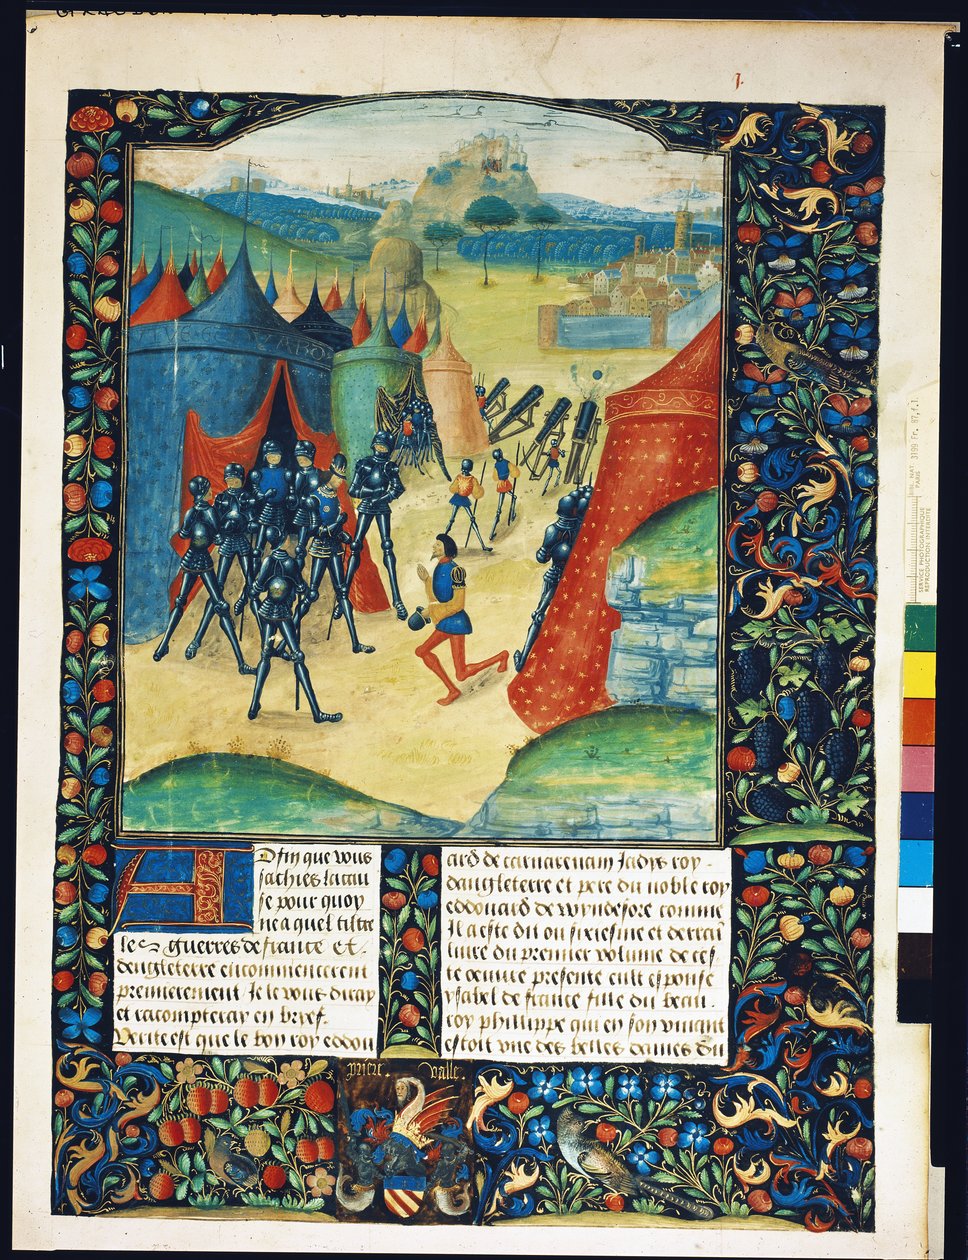 1.
Afin que vous
sachies la cau
se pour quoy
ne a quel tiltre
les guerres de france et
dengleterre encommencerent
premierement Je le vous diray
et racompteray en brief.
Verite est que le bon roy edou
ard de carnarenam Jadis roy
dangleterre et pere du noble roy
edouard de wyndesore comme
Il a este dit ou sixiesme et derrai
liure du premier volume de ces
te oeuure presente eult espouse
ysabel de france fille du beau
roy phillippe qui en son viuant
estoit vne des belles dames du
valle.
BIB. NAT. 3199 Fr. 87, f.1.
PARIS
SERVICE PHOTOGRAPHIQUE
REPRODUCTION INTERDITE